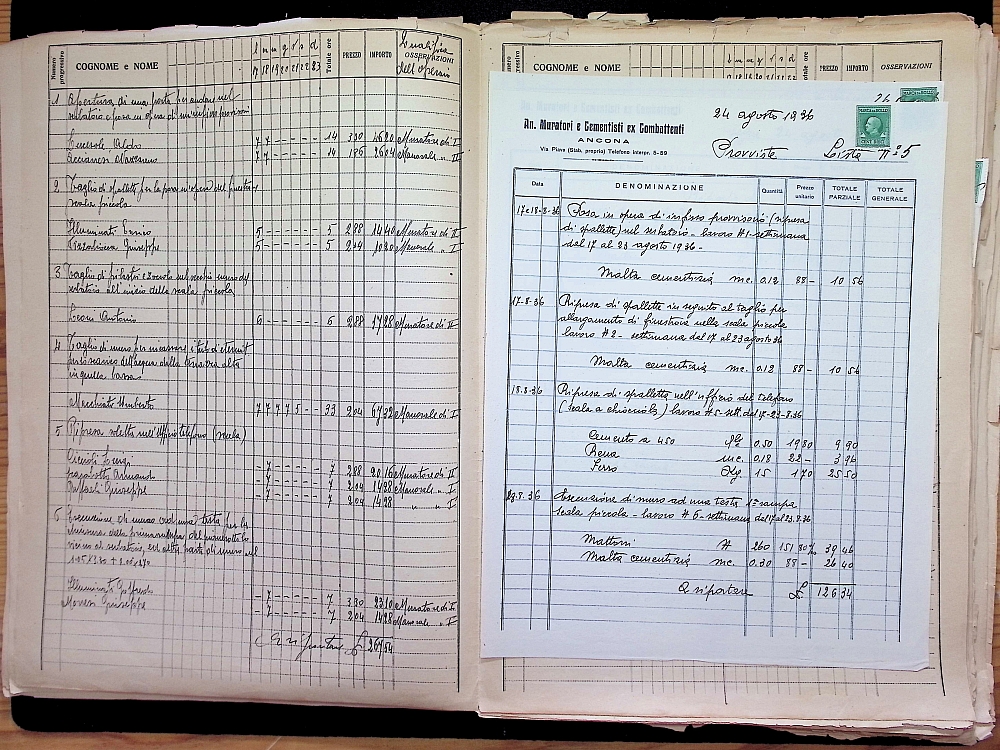 Numero progressivo
COGNOME e NOME
l m m g v s d
17 18 19 20 21 22 23
Totale ore
PREZZO
IMPORTO
Qualifica
OSSERVAZIONI
dell'operaio
1 Apertura di una porta per andare nel
serbatoio e posa in opera di un infisso provvisorio
7 7 - - - - - 14 330 4620 Muratore di I
7 7 - - - - - 14 186 2604 Manovale " II
2 Taglio di spallette per la posa in opera del finestrone
scala piccola
Illuminati Ennio 5 - - - - - - 5 288 1440 Muratore di II
Giuseppe 5 - - - - - - 5 204 1020 Manovale " I
3 Taglio di pilastri e zoccolo nel vecchio muro del
serbatoio all'inizio della scala piccola
Leoni Antonio 6 - - - - - - 6 288 1728 Muratore di II
4 Taglio di muro per incassare i tubi di eternit
per lo scarico dell'acqua della terrazza alta
in quella bassa
Umberto 7 7 7 7 5 - - 33 204 6732 Manovale di I
5 Ripresa soletta nell'Ufficio telefono (scala)
- 7 - - - - - 7 288 2016 Muratore di II
Armando - 7 - - - - - 7 204 1428 Manovale " I
Giuseppe - 7 - - - - - 7 204 1428 " " I
6 Esecuzione di muro ad una testa per la
chiusura della prima rampa del
vicino al serbatoio, ed altra parte di muro nel
Illuminati Goffredo - 7 - - - - - 7 330 2310 Muratore di I
Giuseppe - 7 - - - - - 7 204 1428 Manovale " I
A riportare £ 267 54
COGNOME e NOME
Totale ore
PREZZO
IMPORTO
OSSERVAZIONI
An. Muratori e Cementisti ex Combattenti
ANCONA
Via Piave (Stab. proprio) Telefono interpr. 5-89
24 agosto 1936
Provviste Lista n° 5
Data
DENOMINAZIONE
Quantità
Prezzo unitario
TOTALE PARZIALE
TOTALE GENERALE
17 e 18-8-36 Posa in opera di infisso provvisorio (ripresa
di spallette) nel serbatoio - lavoro #1 - settimana
dal 17 al 23 agosto 1936 -
Malta cementizia mc. 0.12 88 - 10 56
17-8-36 Ripresa di spallette in seguito al taglio per
allargamento di finestrone nella scala piccola
lavoro #2 - settimana dal 17 al 23 agosto 36
Malta cementizia mc. 0.12 88 - 10 56
18.8.36 Ripresa di spalletta nell'ufficio del telefono
(scala a chiocciola) lavoro #5 - sett. dal 17-23-8.36
Cemento a 450 qle 0.50 19 80 9 90
Rena mc. 0.18 22 - 3 96
Ferro Kg. 15 1 70 25 50
Esecuzione di muro ad una testa 1a rampa
scala piccola - lavoro #6 - settimana dal 17 al 23.8.36
Mattoni # 260 151 80 ‰ 39 46
Malta cementizia mc. 0.30 88 - 26 40
A riportare £ 126 34